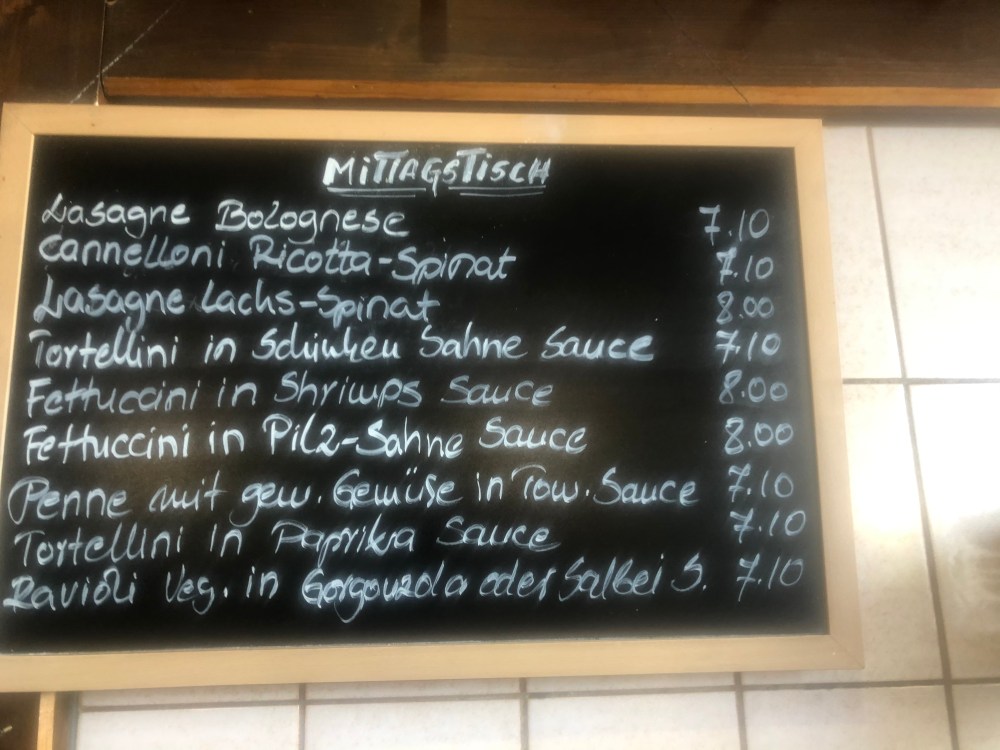 MITTAGSTISCH
Lasagne Bolognese 7.10
Cannelloni Ricotta-Spinat 7.10
Lasagne Lachs-Spinat 8.00
Tortellini in Schinken Sahne Sauce 7.10
Fettuccini in Shrimps Sauce 8.00
Fettuccini in Pilz-Sahne Sauce 8.00
Penne mit gem. Gemüse in Tom. Sauce 7.10
Tortellini in Paprika Sauce 7.10
Ravioli Veg. in Gorgonzola oder Salbei S. 7.10